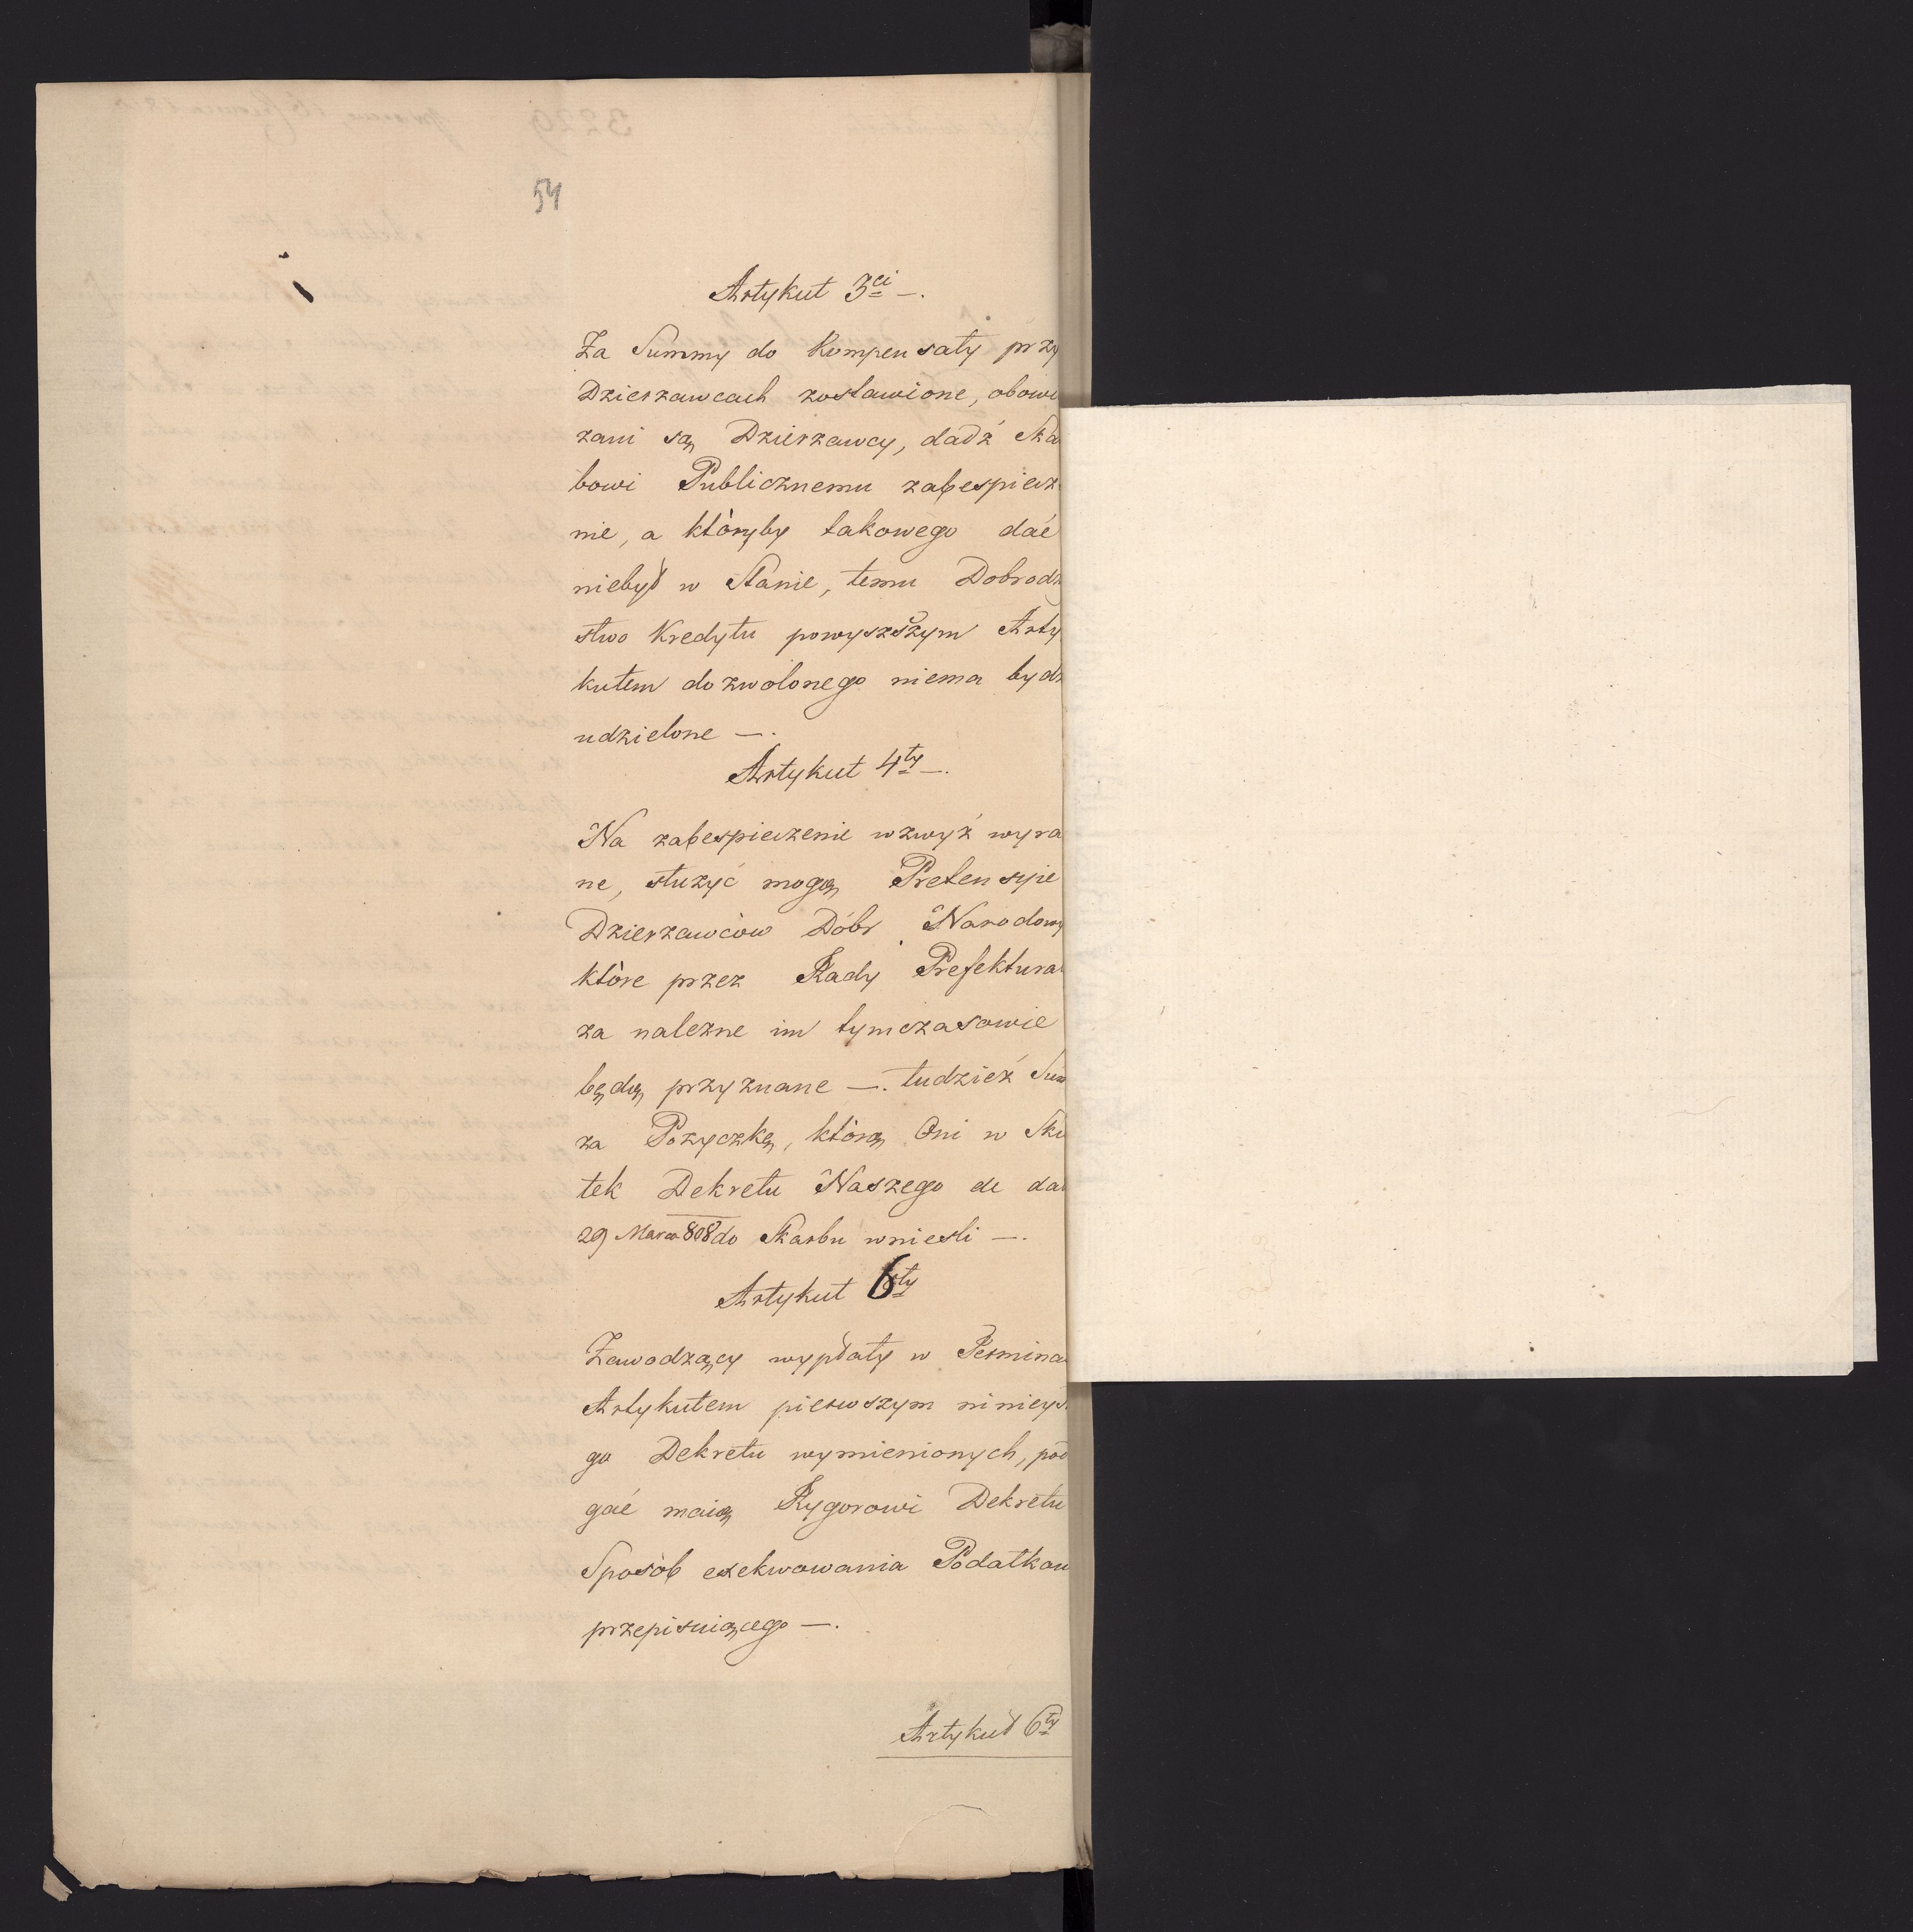 54
Artykuł 3ci —.
Za Summy do Kompensaty przy
Dzierzawcach zostawione, obowi
zani są Dzierzawcy, dadź Ska
bowi Publicznemu zabespiecz
nie, a któryby takowego dać
niebył w Stanie, temu Dobrodz
stwo Kredytu powyszszym Arty
kułem dozwolonego niema bydź
udzielone —.
Artykuł 4ty —.
Na zabespieczenie wzwyż wyra
ne, służyć mogą Pretensyie
Dzierzawców Dóbr Narodowy
które przez Rady Prefektural
za nalezne im tymczasowie
będą przyznane —. tudzież Sum
za Pozyczkę, którą Oni w Sku
tek Dekretu Naszego de dat
29 Marca 808 do Skarbu wniesli —.
Artykuł 6ty
Zawodzący wypłaty w Termina
Artykułem pierwszym ninieysz
go Dekretu wymienionych, pod
gać maią Rygorowi Dekretu
Sposób exekwowania Podatkow
przepisuiącego —.
Artykuł 6ty